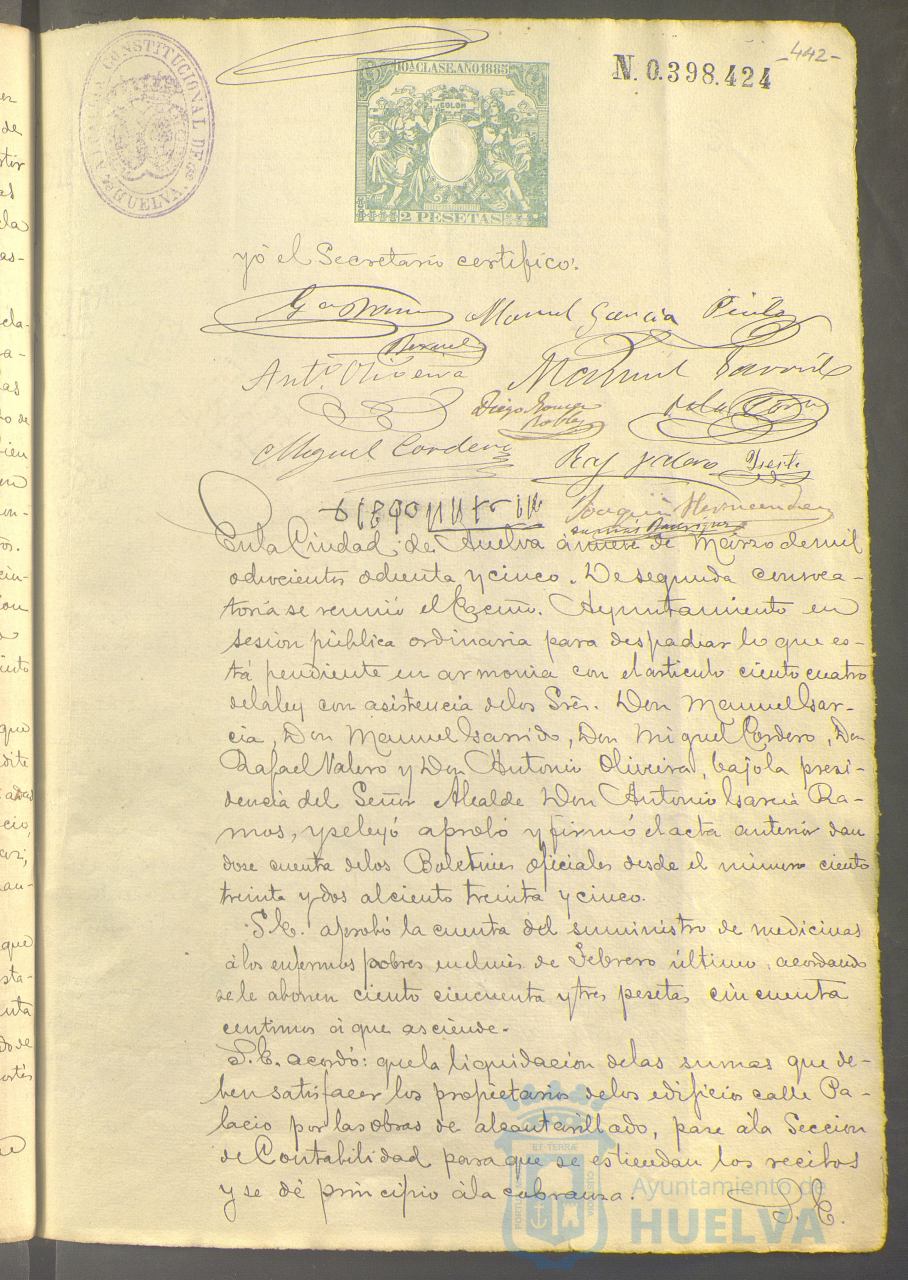 -442-
ALCALDIA CONSTITUCIONAL DE HUELVA
10ª CLASE. AÑO 1885
COLON
2 PESETAS
N. 0.398.424
yó el Secretario certifico.
Manuel Garcia Pinto
Antº Oliveira
Manuel Garrido
Diego
Robles
Miguel Cordero
Raf Valero
Joaquin Hernandez
En la Ciudad de Huelva á nueve de Marzo de mil
ochocientos ochenta y cinco. De segunda convoca-
toria se reunió el Excmo. Ayuntamiento en
sesion pública ordinaria para despachar lo que es-
tá pendiente en armonia con el articulo ciento cuatro
de la ley con asistencia de los Sres. Don Manuel Gar-
cia, Don Manuel Garrido, Don Miguel Cordero, Don
Rafael Valero y Don Antonio Oliveira, bajo la presi-
dencia del Señor Alcalde Don Antonio Garcia Ra-
mos, y se leyó aprobó y firmó el acta anterior dan
dose cuenta de los Boletines oficiales desde el número ciento
treinta y dos al ciento treinta y cinco.
S.E. aprobó la cuenta del suministro de medicinas
á los enfermos pobres en el mes de Febrero último, acordando
se le abonen ciento cincuenta y tres pesetas cincuenta
centimos á que asciende.
S.E. acordó: que la liquidacion de las sumas que de-
ben satisfacer los propietarios de los edificios calle Pa-
lacio por las obras de alcantarillado, pase á la Seccion
de Contabilidad para que se estiendan los recibos
y se dé principio á la cobranza. S.E.
Ayuntamiento de
HUELVA